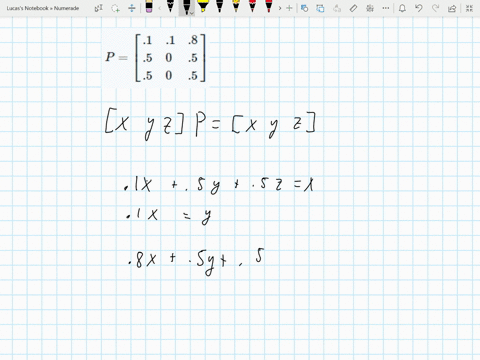 Lucas's Notebook » Numerade
P = [ .1 .1 .8
.5 0 .5
.5 0 .5 ]
[x y z] P = [x y z]
.1x + .5y + .5z = x
.1x = y
.8x + .5y + .5